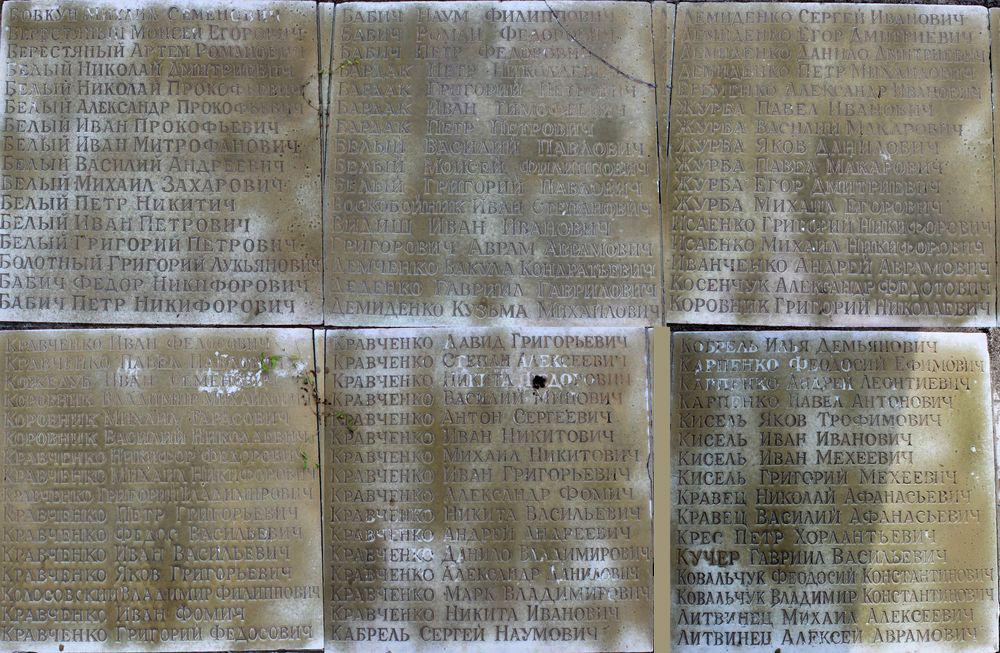 БОВКУН МИХАИЛ СЕМЕНОВИЧ
БЕРЕСТЯНЫЙ МОИСЕЙ ЕГОРОВИЧ
БЕРЕСТЯНЫЙ АРТЕМ РОМАНОВИЧ
БЕЛЫЙ НИКОЛАЙ ДМИТРИЕВИЧ
БЕЛЫЙ НИКОЛАЙ ПРОКОФЬЕВИЧ
БЕЛЫЙ АЛЕКСАНДР ПРОКОФЬЕВИЧ
БЕЛЫЙ ИВАН ПРОКОФЬЕВИЧ
БЕЛЫЙ ИВАН МИТРОФАНОВИЧ
БЕЛЫЙ ВАСИЛИЙ АНДРЕЕВИЧ
БЕЛЫЙ МИХАИЛ ЗАХАРОВИЧ
БЕЛЫЙ ПЕТР НИКИТИЧ
БЕЛЫЙ ИВАН ПЕТРОВИЧ
БЕЛЫЙ ГРИГОРИЙ ПЕТРОВИЧ
БОЛОТНЫЙ ГРИГОРИЙ ЛУКЬЯНОВИЧ
БАБИЧ ФЕДОР НИКИФОРОВИЧ
БАБИЧ ПЕТР НИКИФОРОВИЧ
БАБИЧ НАУМ ФИЛИППОВИЧ
БАБИЧ РОМАН ФЕДОРОВИЧ
БАБИЧ ПЕТР ФЕДОРОВИЧ
БАРДАК ПЕТР НИКОЛАЕВИЧ
БАРДАК ГРИГОРИЙ ПЕТРОВИЧ
БАРДАК ИВАН ТИМОФЕЕВИЧ
БАРДАК ПЕТР ПЕТРОВИЧ
БЕЛЫЙ ВАСИЛИЙ ПАВЛОВИЧ
БЕЛЫЙ МОИСЕЙ ФИЛИППОВИЧ
БЕЛЫЙ ГРИГОРИЙ ПАВЛОВИЧ
ВОСКОБОЙНИК ИВАН СТЕПАНОВИЧ
ИВАН ИВАНОВИЧ
ГРИГОРОВИЧ АВРАМ АВРАМОВИЧ
ДЕМЧЕНКО ВАКУЛА КОНДРАТЬЕВИЧ
ДЕДЕНКО ГАВРИИЛ ГАВРИЛОВИЧ
ДЕМИДЕНКО КУЗЬМА МИХАЙЛОВИЧ
ДЕМИДЕНКО СЕРГЕЙ ИВАНОВИЧ
ДЕМИДЕНКО ЕГОР ДМИТРИЕВИЧ
ДЕМИДЕНКО ДАНИЛО ДМИТРИЕВИЧ
ДЕМИДЕНКО ПЕТР МИХАЙЛОВИЧ
ЕРЕМЕНКО АЛЕКСАНДР ИВАНОВИЧ
ЖУРБА ПАВЕЛ ИВАНОВИЧ
ЖУРБА ВАСИЛИЙ МАКАРОВИЧ
ЖУРБА ЯКОВ ДАНИЛОВИЧ
ЖУРБА ПАВЕЛ МАКАРОВИЧ
ЖУРБА ЕГОР ДМИТРИЕВИЧ
ЖУРБА МИХАИЛ ЕГОРОВИЧ
ИСАЕНКО ГРИГОРИЙ НИКИФОРОВИЧ
ИСАЕНКО МИХАИЛ НИКИФОРОВИЧ
ИВАНЧЕНКО АНДРЕЙ АВРАМОВИЧ
КОСЕНЧУК АЛЕКСАНДР ФЕДОТОВИЧ
КОРОВНИК ГРИГОРИЙ НИКОЛАЕВИЧ
КРАВЧЕНКО ИВАН ФЕДОСОВИЧ
КРАВЧЕНКО ПАВЕЛ
КОЖЕДУБ ИВАН СЕМЕНОВИЧ
КОРОВНИК ВЛАДИМИР
КОРОВНИК
КОРОВНИК ВАСИЛИЙ НИКОЛАЕВИЧ
КРАВЧЕНКО НИКИФОР ФЕДОРОВИЧ
КРАВЧЕНКО МИХАИЛ НИКИФОРОВИЧ
КРАВЧЕНКО ГРИГОРИЙ ВЛАДИМИРОВИЧ
КРАВЧЕНКО ПЕТР ГРИГОРЬЕВИЧ
КРАВЧЕНКО ФЕДОС ВАСИЛЬЕВИЧ
КРАВЧЕНКО ИВАН ВАСИЛЬЕВИЧ
КРАВЧЕНКО ЯКОВ ГРИГОРЬЕВИЧ
КОЛОСОВСКИЙ ВЛАДИМИР ФИЛИППОВИЧ
КРАВЧЕНКО ИВАН ФОМИЧ
КРАВЧЕНКО ГРИГОРИЙ ФЕДОСОВИЧ
КРАВЧЕНКО ДАВИД ГРИГОРЬЕВИЧ
КРАВЧЕНКО СТЕПАН АЛЕКСЕЕВИЧ
КРАВЧЕНКО НИКИТА ФЕДОРОВИЧ
КРАВЧЕНКО ВАСИЛИЙ МИНОВИЧ
КРАВЧЕНКО АНТОН СЕРГЕЕВИЧ
КРАВЧЕНКО ИВАН НИКИТОВИЧ
КРАВЧЕНКО МИХАИЛ НИКИТОВИЧ
КРАВЧЕНКО ИВАН ГРИГОРЬЕВИЧ
КРАВЧЕНКО АЛЕКСАНДР ФОМИЧ
КРАВЧЕНКО НИКИТА ВАСИЛЬЕВИЧ
КРАВЧЕНКО АНДРЕЙ АНДРЕЕВИЧ
КРАВЧЕНКО ДАНИЛО ВЛАДИМИРОВИЧ
КРАВЧЕНКО АЛЕКСАНДР ДАНИЛОВИЧ
КРАВЧЕНКО МАРК ВЛАДИМИРОВИЧ
КРАВЧЕНКО НИКИТА ИВАНОВИЧ
КАБРЕЛЬ СЕРГЕЙ НАУМОВИЧ
КОБРЕЛЬ ИЛЬЯ ДЕМЬЯНОВИЧ
КАРПЕНКО ФЕОДОСИЙ ЕФИМОВИЧ
КАРПЕНКО АНДРЕЙ ЛЕОНТИЕВИЧ
КАРПЕНКО ПАВЕЛ АНТОНОВИЧ
КИСЕЛЬ ЯКОВ ТРОФИМОВИЧ
КИСЕЛЬ ИВАН ИВАНОВИЧ
КИСЕЛЬ ИВАН МЕХЕЕВИЧ
КИСЕЛЬ ГРИГОРИЙ МЕХЕЕВИЧ
КРАВЕЦ НИКОЛАЙ АФАНАСЬЕВИЧ
КРАВЕЦ ВАСИЛИЙ АФАНАСЬЕВИЧ
КРЕС ПЕТР ХОРЛАНТЬЕВИЧ
КУЧЕР ГАВРИИЛ ВАСИЛЬЕВИЧ
КОВАЛЬЧУК ФЕОДОСИЙ КОНСТАНТИНОВИЧ
КОВАЛЬЧУК ВЛАДИМИР КОНСТАНТИНОВИЧ
ЛИТВИНЕЦ МИХАИЛ АЛЕКСЕЕВИЧ
ЛИТВИНЕЦ АЛЕКСЕЙ АВРАМОВИЧ